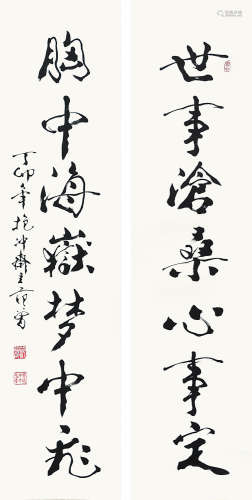 世事滄桑心事定
胸中海嶽夢中飛
丁卯年抱冲齋主范曾